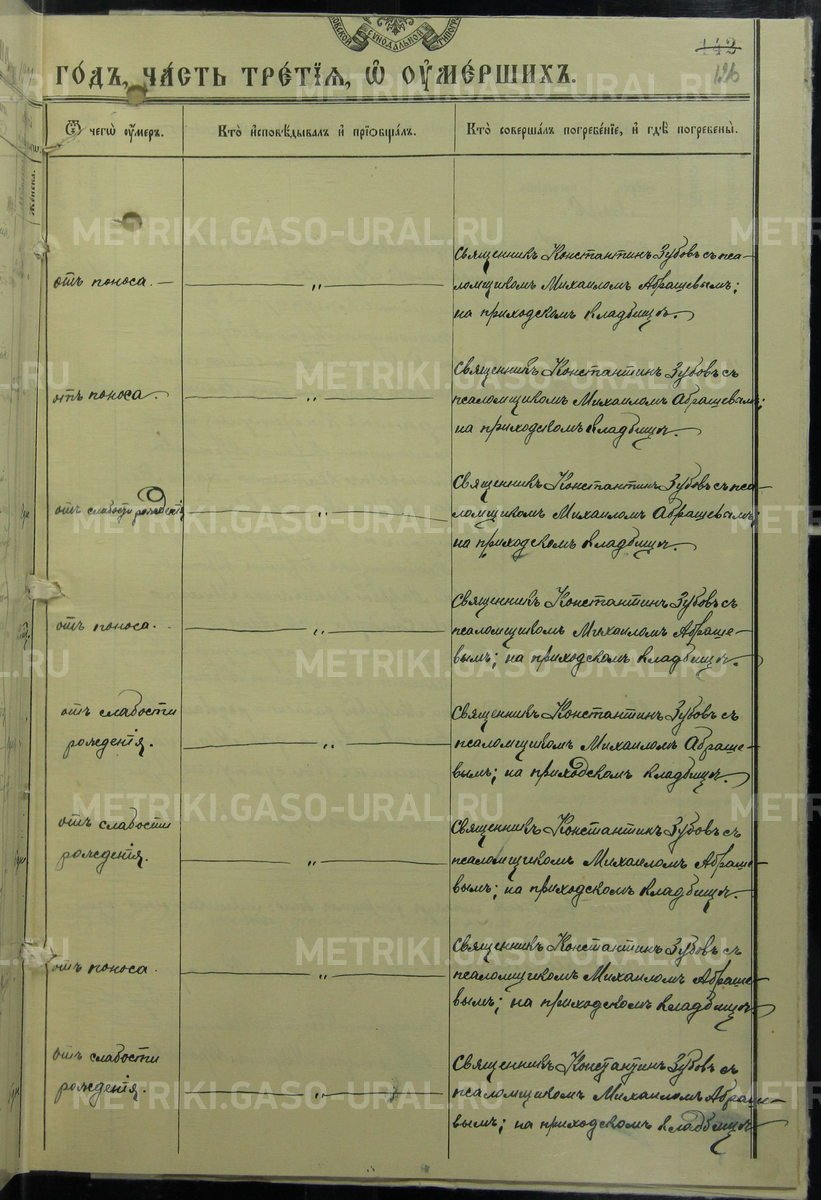 СѴНОДАЛЬНОЙ
142
196
ГО́ДЪ, ЧА́СТЬ ТРЕ́ТІѦ, Ѡ҆ ОУ҆МЕ́РШИХЪ.
Ѿ чегѡ̀ оу҆́меръ.
Кто̀ и҆сповѣ́дывалъ и҆ прїѻбща́лъ.
Кто̀ соверша́лъ погребе́нїе, и҆ гдѣ̀ погребены̀.
Женска.
отъ поноса. —
— „ —
Священникъ Константинъ Зубовъ съ пса-
ломщикомъ Михаиломъ Абрашевымъ;
на приходскомъ кладбищѣ.
отъ поноса.
— „ —
Священникъ Константинъ Зубовъ съ
псаломщикомъ Михаиломъ Абрашевымъ;
на приходскомъ кладбищѣ.
отъ слабости рожденія
— „ —
Священникъ Константинъ Зубовъ съ пса-
ломщикомъ Михаиломъ Абрашевымъ;
на приходскомъ кладбищѣ.
отъ поноса.
— „ —
Священникъ Константинъ Зубовъ съ
псаломщикомъ Михаиломъ Абраше-
вымъ; на приходскомъ кладбищѣ.
отъ слабости
рожденія.
— „ —
Священникъ Константинъ Зубовъ съ
псаломщикомъ Михаиломъ Абраше-
вымъ; на приходскомъ кладбищѣ.
отъ слабости
рожденія.
— „ —
Священникъ Константинъ Зубовъ съ
псаломщикомъ Михаиломъ Абраше-
вымъ; на приходскомъ кладбищѣ.
отъ поноса.
— „ —
Священникъ Константинъ Зубовъ съ
псаломщикомъ Михаиломъ Абраше-
вымъ; на приходскомъ кладбищѣ.
отъ слабости
рожденія.
— „ —
Священникъ Константинъ Зубовъ съ
псаломщикомъ Михаиломъ Абраше-
вымъ; на приходскомъ кладбищѣ
METRIKI.GASO-URAL.RU